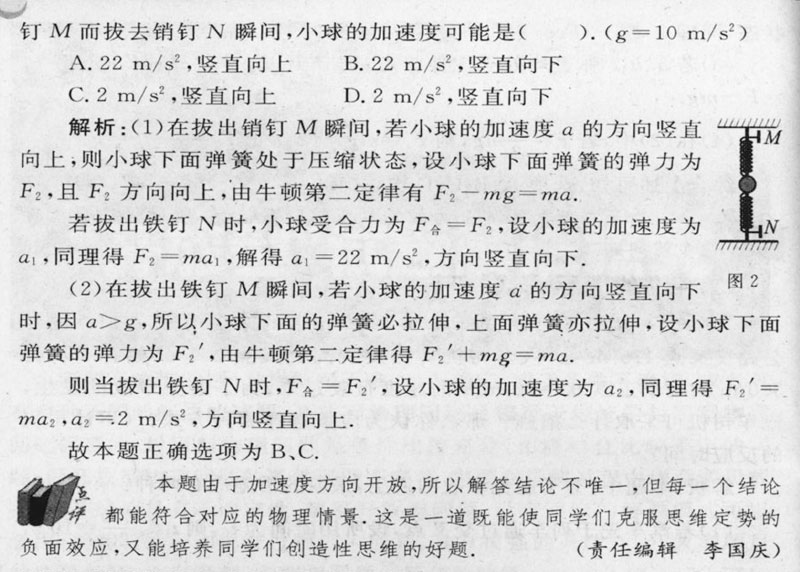 钉 M 而拔去销钉 N 瞬间,小球的加速度可能是( ).(g=10 m/s²)
A. 22 m/s²,竖直向上 B. 22 m/s²,竖直向下
C. 2 m/s²,竖直向上 D. 2 m/s²,竖直向下
解析:(1)在拔出销钉 M 瞬间,若小球的加速度 a 的方向竖直
向上,则小球下面弹簧处于压缩状态,设小球下面弹簧的弹力为
F₂,且 F₂ 方向向上,由牛顿第二定律有 F₂-mg=ma.
若拔出铁钉 N 时,小球受合力为 F合=F₂,设小球的加速度为
a₁,同理得 F₂=ma₁,解得 a₁=22 m/s²,方向竖直向下.
(2)在拔出铁钉 M 瞬间,若小球的加速度 a 的方向竖直向下
时,因 a>g,所以小球下面的弹簧必拉伸,上面弹簧亦拉伸,设小球下面
弹簧的弹力为 F₂′,由牛顿第二定律得 F₂′+mg=ma.
则当拔出铁钉 N 时,F合=F₂′,设小球的加速度为 a₂,同理得 F₂′=
ma₂,a₂=2 m/s²,方向竖直向上.
故本题正确选项为 B、C.
M
N
图 2
点评
本题由于加速度方向开放,所以解答结论不唯一,但每一个结论
都能符合对应的物理情景.这是一道既能使同学们克服思维定势的
负面效应,又能培养同学们创造性思维的好题. (责任编辑 李国庆)